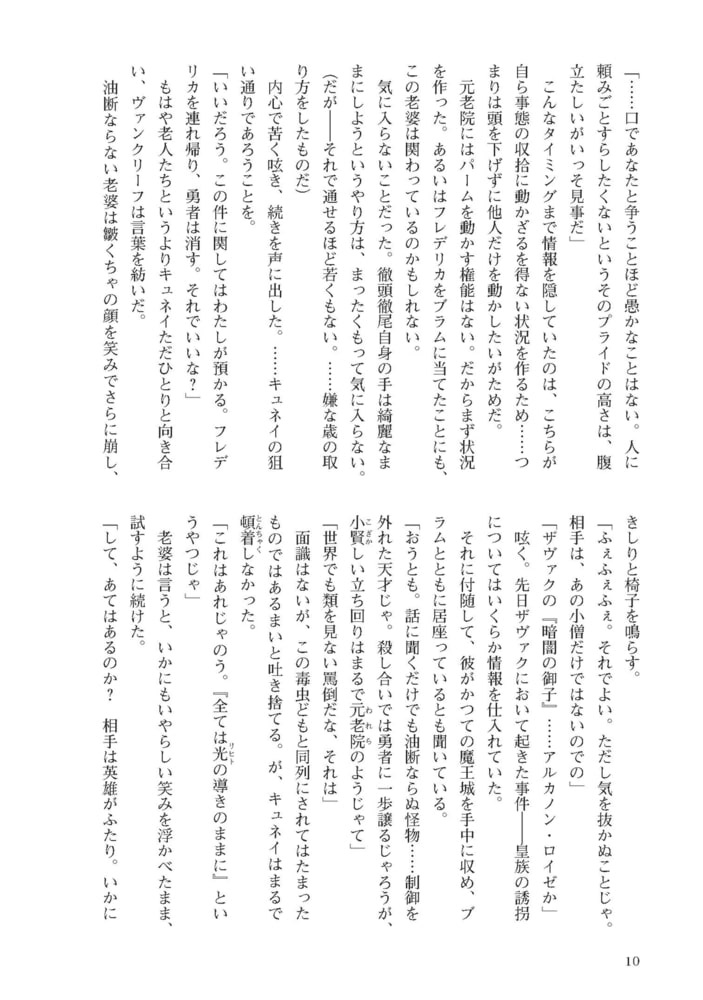 「……口であなたと争うことほど愚かなことはない。人に
頼みごとすらしたくないというそのプライドの高さは、腹
立たしいがいっそ見事だ」
　こんなタイミングまで情報を隠していたのは、こちらが
自ら事態の収拾に動かざるを得ない状況を作るため……つ
まりは頭を下げずに他人だけを動かしたいがためだ。
　元老院にはパームを動かす権能はない。だからまず状況
を作った。あるいはフレデリカをブラムに当てたことにも、
この老婆は関わっているのかもしれない。
　気に入らないことだった。徹頭徹尾自身の手は綺麗なま
まにしようというやり方は、まったくもって気に入らない。
（だが――それで通せるほど若くもない。……嫌な歳の取
り方をしたものだ）
　内心で苦く呟き、続きを声に出した。……キュネイの狙
い通りであろうことを。
「いいだろう。この件に関してはわたしが預かる。フレデ
リカを連れ帰り、勇者は消す。それでいいな？」
　もはや老人たちというよりキュネイただひとりと向き合
い、ヴァンクリーフは言葉を紡いだ。
　油断ならない老婆は皺くちゃの顔を笑みでさらに崩し、
きしりと椅子を鳴らす。
「ふぇふぇふぇ。それでよい。ただし気を抜かぬことじゃ。
相手は、あの小僧だけではないのでの」
「ザヴァクの『暗闇の御子』……アルカノン・ロイゼか」
　呟く。先日ザヴァクにおいて起きた事件――皇族の誘拐
についてはいくらか情報を仕入れていた。
　それに付随して、彼がかつての魔王城を手中に収め、ブ
ラムとともに居座っているとも聞いている。
「おうとも。話に聞くだけでも油断ならぬ怪物……制御を
外れた天才じゃ。殺し合いでは勇者に一歩譲るじゃろうが、
小賢しい立ち回りはまるで元老院のようじゃて」
「世界でも類を見ない罵倒だな、それは」
　面識はないが、この毒虫どもと同列にされてはたまった
ものではあるまいと吐き捨てる。が、キュネイはまるで
頓着しなかった。
「これはあれじゃのう。『全ては光の導きのままに』とい
うやつじゃ」
　老婆は言うと、いかにもいやらしい笑みを浮かべたまま、
試すように続けた。
「して、あてはあるのか？　相手は英雄がふたり。いかに
10